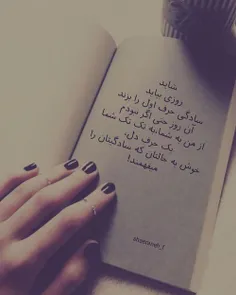 شاید
روزی بیاید
سادگی حرف اول را بزند
آن روز حتی اگر نبودم
از من به شما به تک تک شما
یک حرف دل،
خوش به حالتان که سادگیتان را
میفهمند!